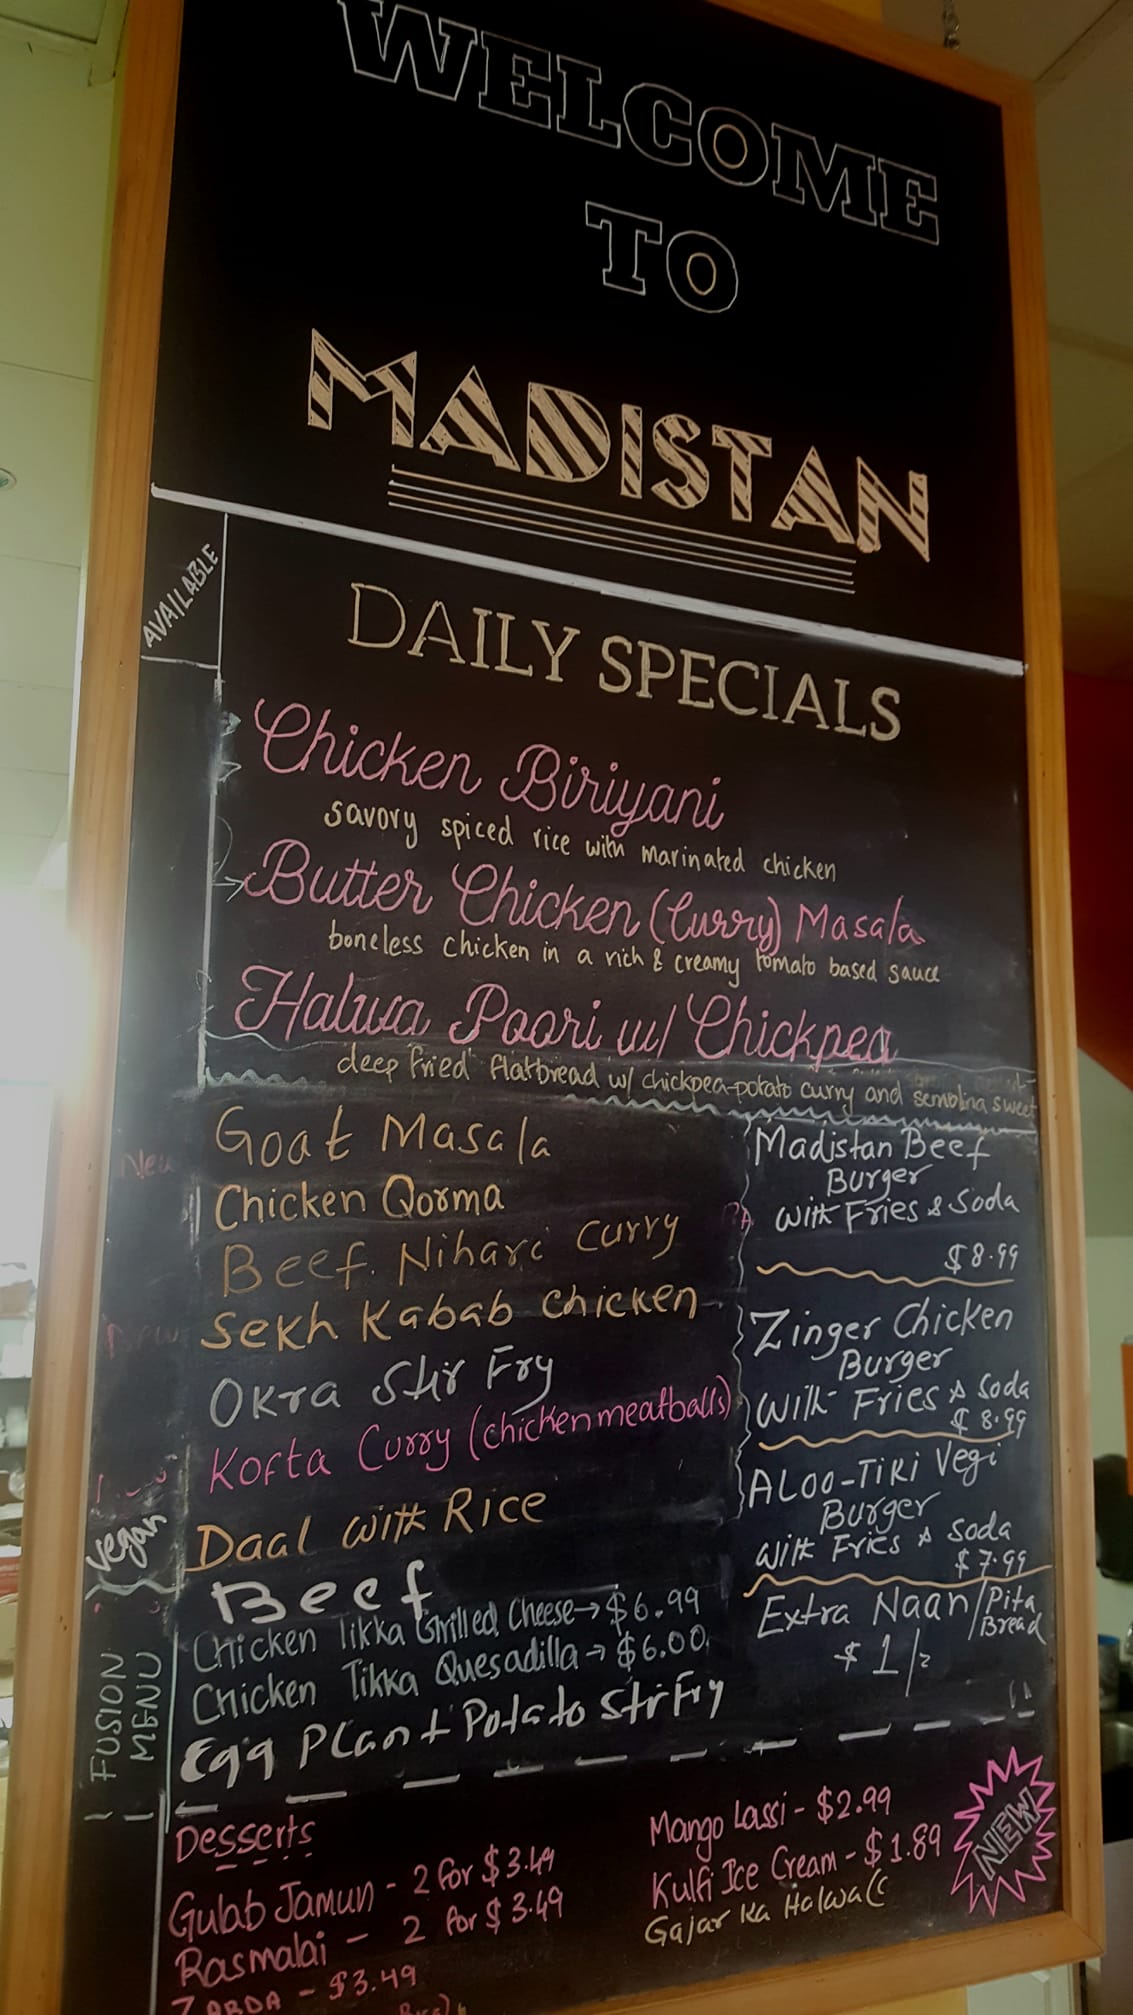 WELCOME
TO
MADISTAN
AVAILABLE
DAILY SPECIALS
Chicken Biriyani
savory spiced rice with marinated chicken
Butter Chicken (Curry) Masala
boneless chicken in a rich & creamy tomato based sauce
Halwa Poori w/ Chickpea
deep fried flatbread w/ chickpea-potato curry and semolina sweet
New
Goat Masala
Chicken Qorma
Beef Nihari Curry
Sekh Kabab chicken
Okra Stir Fry
Kofta Curry (chicken meatballs)
vegan
Daal with Rice
Beef
FUSION
MENU
Chicken Tikka Grilled Cheese → $6.99
Chicken Tikka Quesadilla → $6.00
Egg Plant Potato Stir Fry
Madistan Beef
Burger
with Fries & Soda
$8.99
Zinger Chicken
Burger
with Fries & Soda
$8.99
ALOO-TiKi Vegi
Burger
with Fries & Soda
$7.99
Extra Naan/Pita
Bread
$1/=
Desserts
Gulab Jamun - 2 for $3.49
Rasmalai - 2 for $3.49
ZARDA - $3.49
Mango Lassi - $2.99
Kulfi Ice Cream - $1.89
Gajar Ka Halwa
NEW